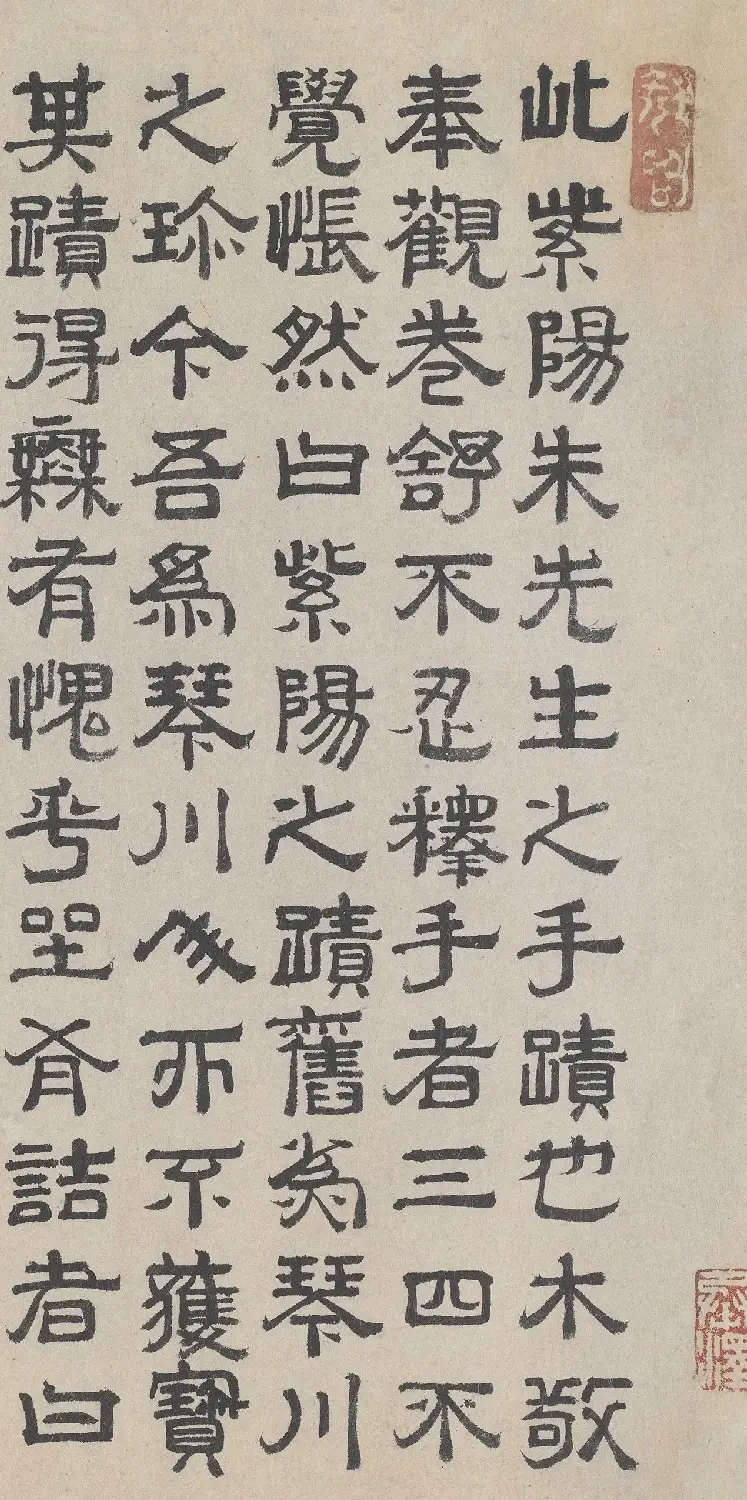 此紫陽朱先生之手蹟也木敬
奉觀卷舒不忍釋手者三四不
覺悵然曰紫陽之蹟舊為琴川
之珎今吾為琴川而不獲寶
其蹟得無有愧乎坐有詰者曰